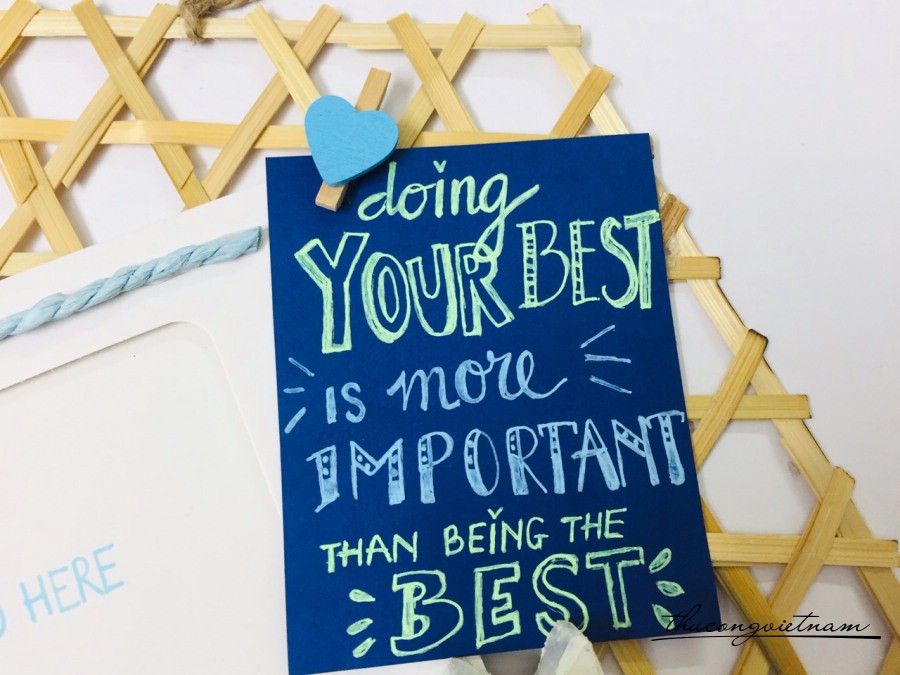 doing
YOUR BEST
IS more
IMPORTANT
THAN BEING THE
BEST
HERE
thucongvietnam